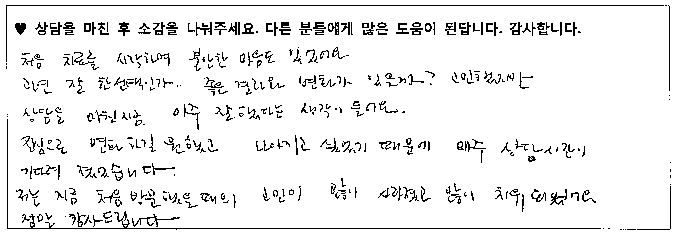 ♥ 상담을 마친 후 소감을 나눠주세요. 다른 분들에게 많은 도움이 된답니다. 감사합니다.
처음 치료를 시작하며 불안한 마음도 있었어요
과연 잘 한 선택인가.. 좋은 결과와 변화가 있을까? 고민했지만
상담을 마친 지금 아주 잘 했다는 생각이 들어요.
진심으로 변화하길 원했고 나아지고 싶었기 때문에 매주 상담시간이
기다려 졌었습니다
저는 지금 처음 방문했을 때의 고민이 많이 사라졌고 많이 치유되었어요
정말 감사드립니다